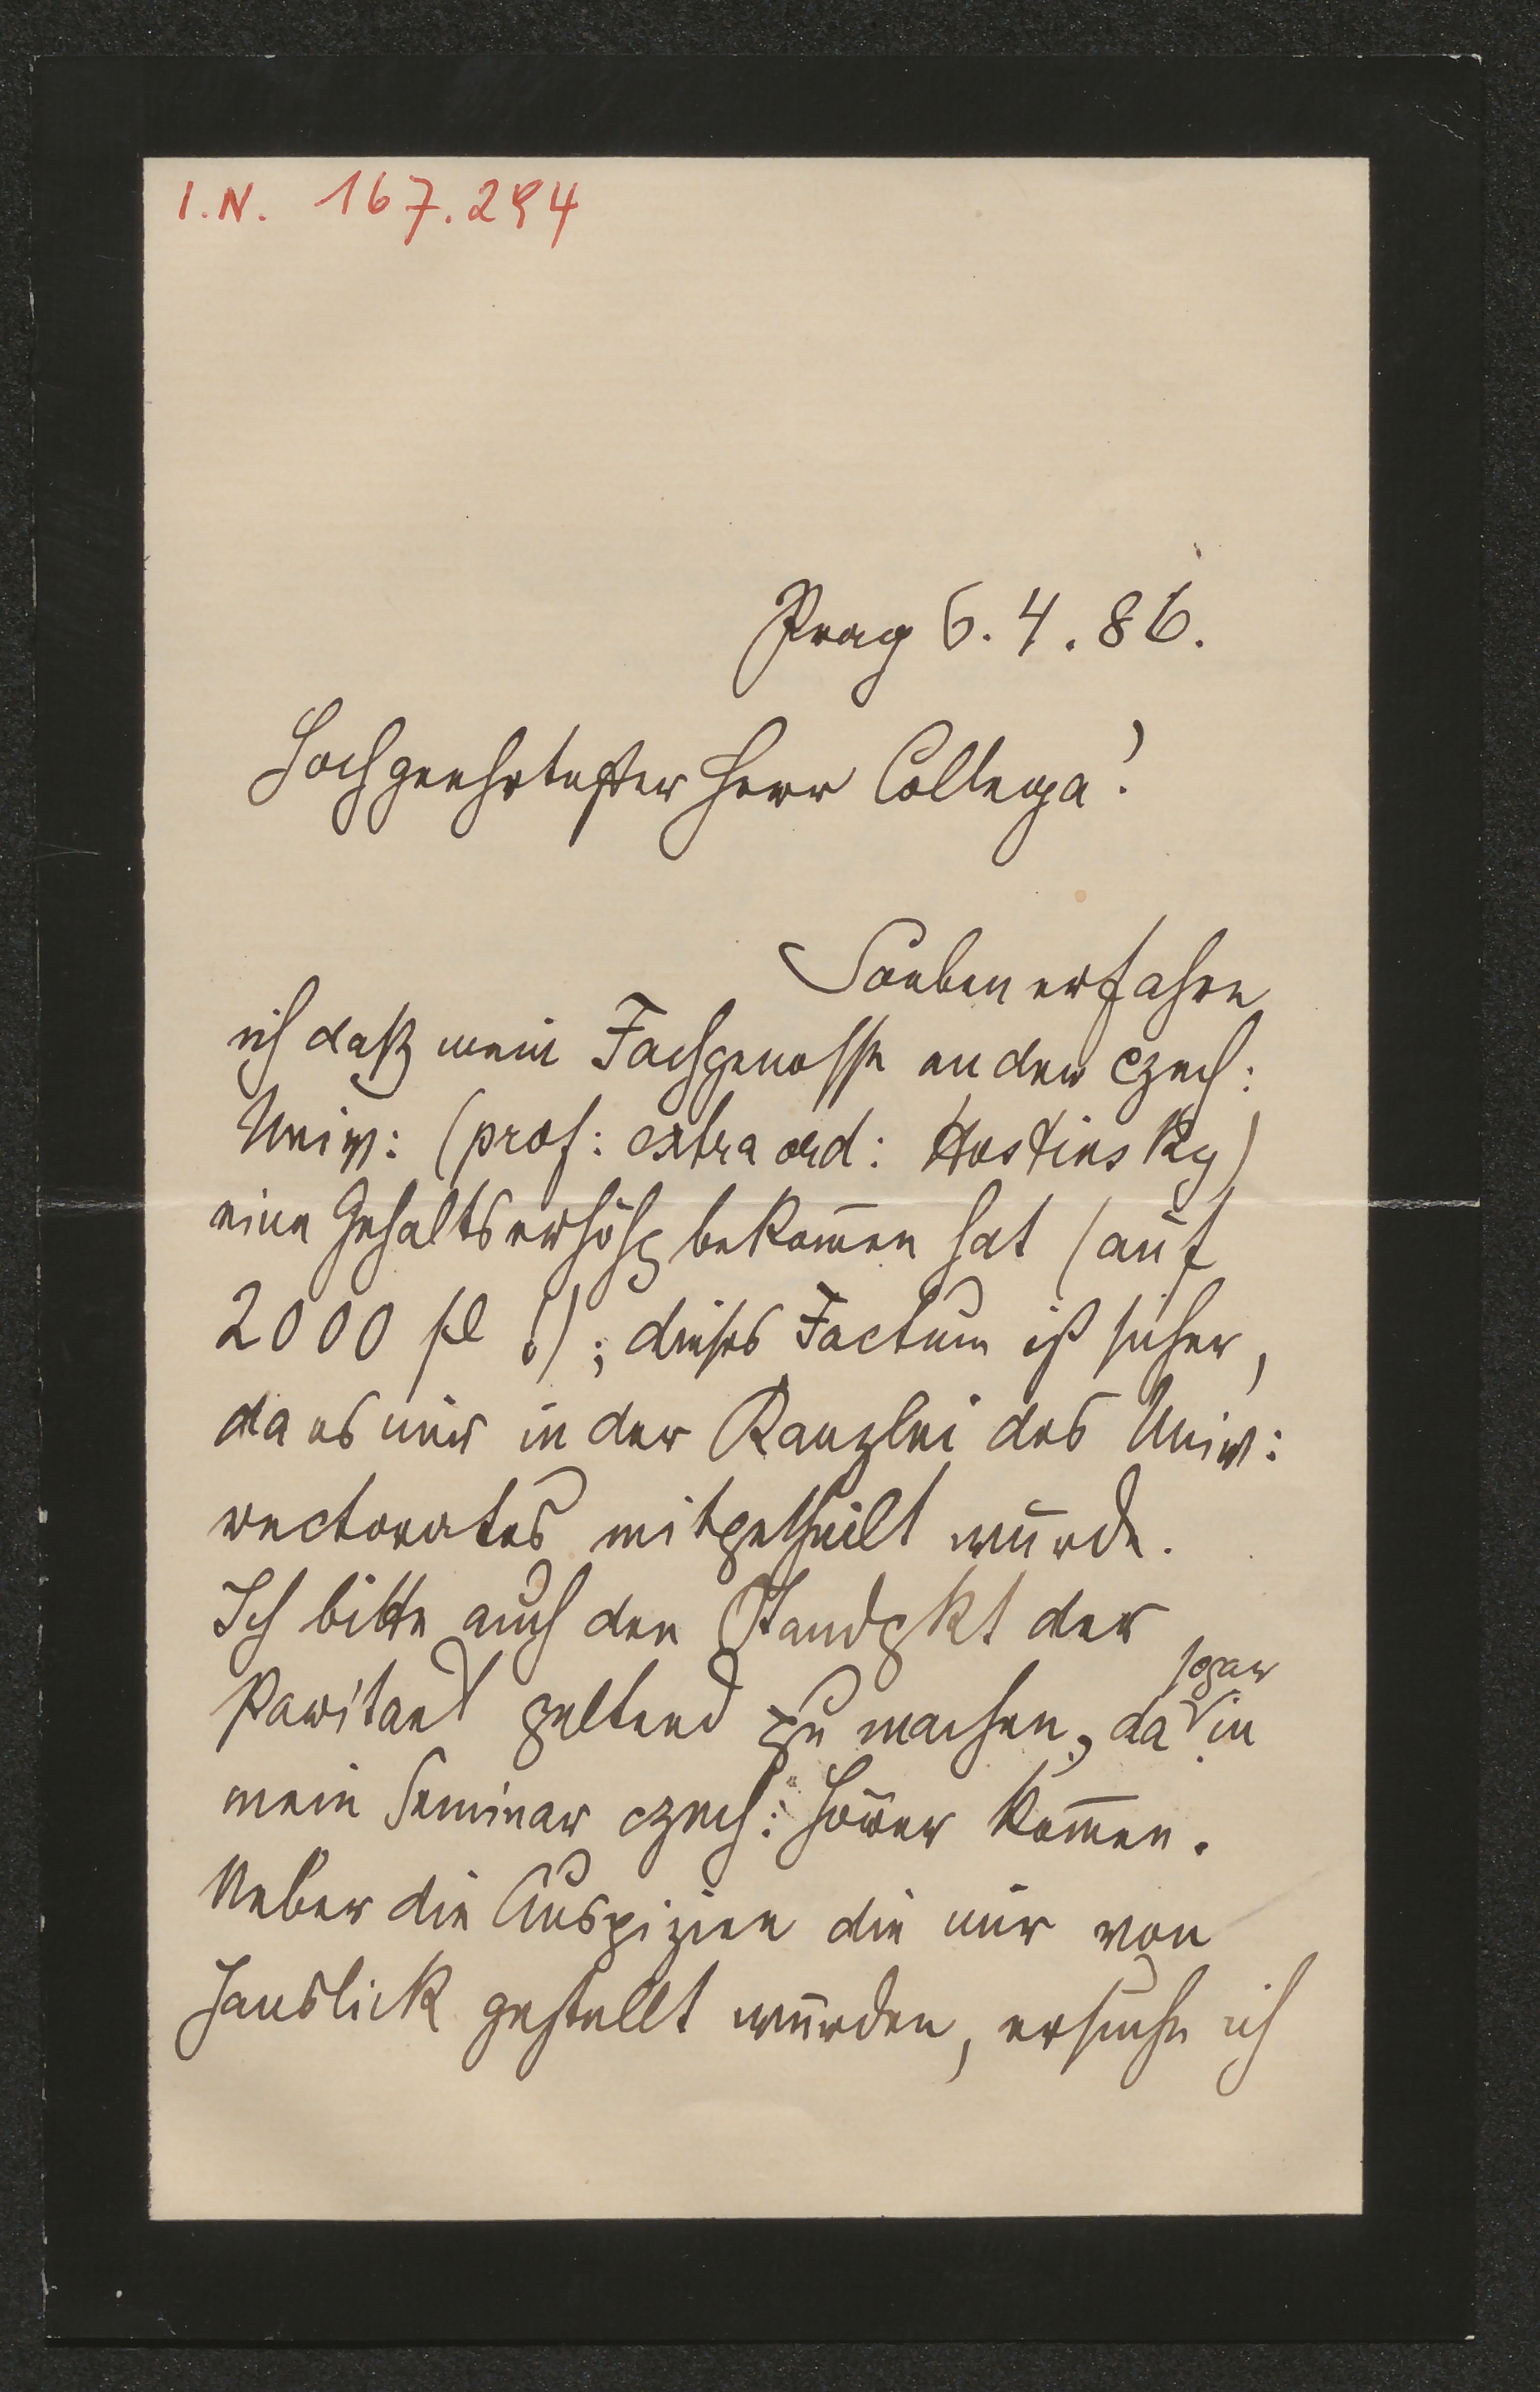 I.N. 167.294
Prag 6.4.86.
Hochgeehrtester Herr Collega!
Soeben erfahre
ich daß mein Fachgenosse an der czech:
Univ: (prof: extra ord: Hostinsky)
eine Gehaltserhöhg bekom̅en hat (auf
2000 fl !); dieses Factum ist sicher,
da es mir in der Kanzlei des Univ:
rectorates mitgetheilt wurde.
Ich bitte auch den Standpkt der
Parität geltend zu machen, da sogar in
mein Seminar czech: Hörer kom̅en.
Ueber die Auspizien die mir von
Hanslick gestellt wurden, ersuche ich